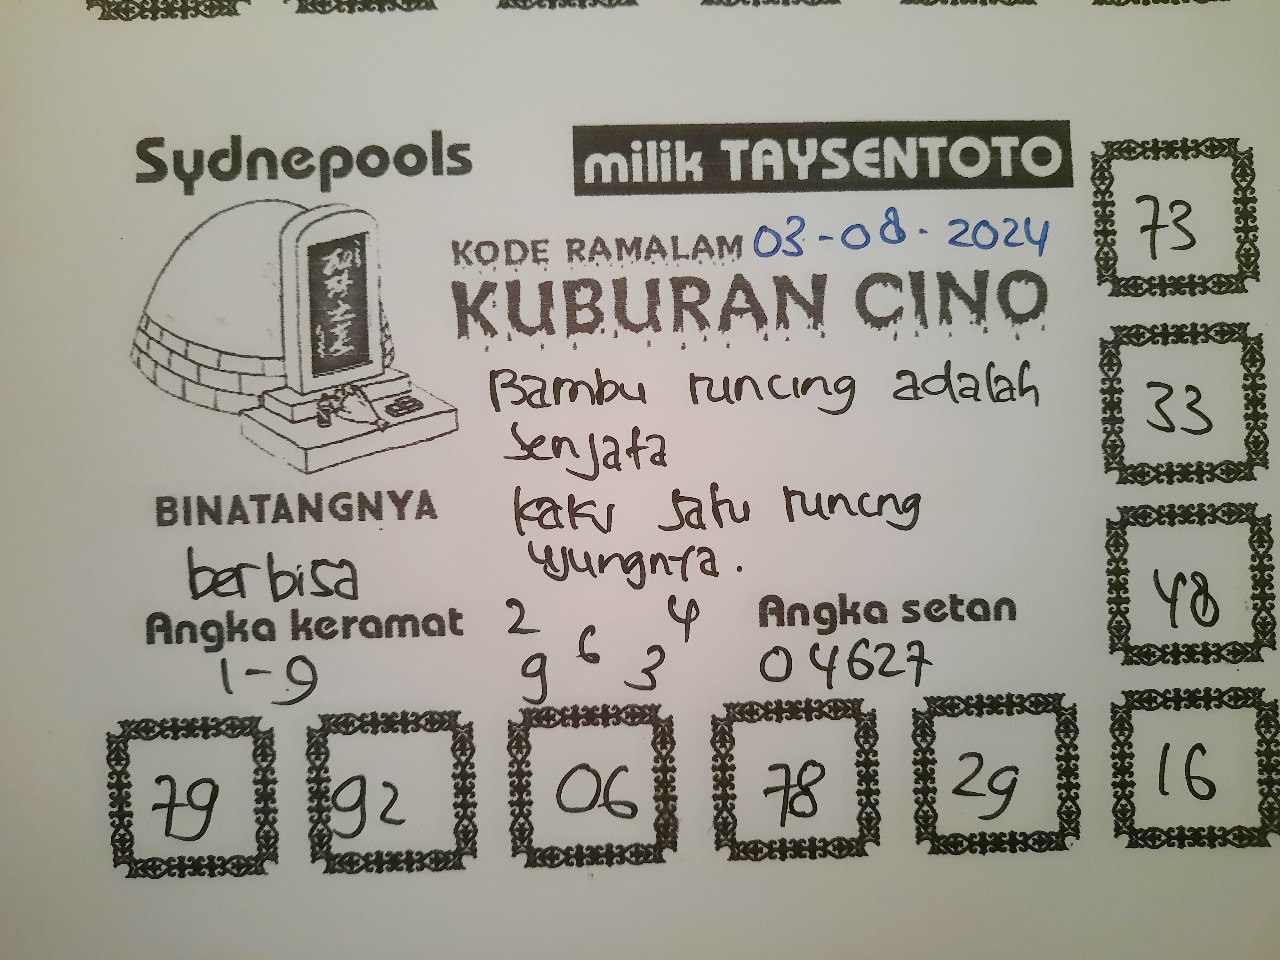 Sydnepools
milik TAYSENTOTO
KODE RAMALAM 03-08-2024
KUBURAN CINO
Bambu runcing adalah
senjata
kaku satu runcng
ujungnya.
BINATANGNYA
berbisa
Angka keramat
1-9
2 6 4
9 3
Angka setan
04627
73
33
48
79 92 06 78 29 16